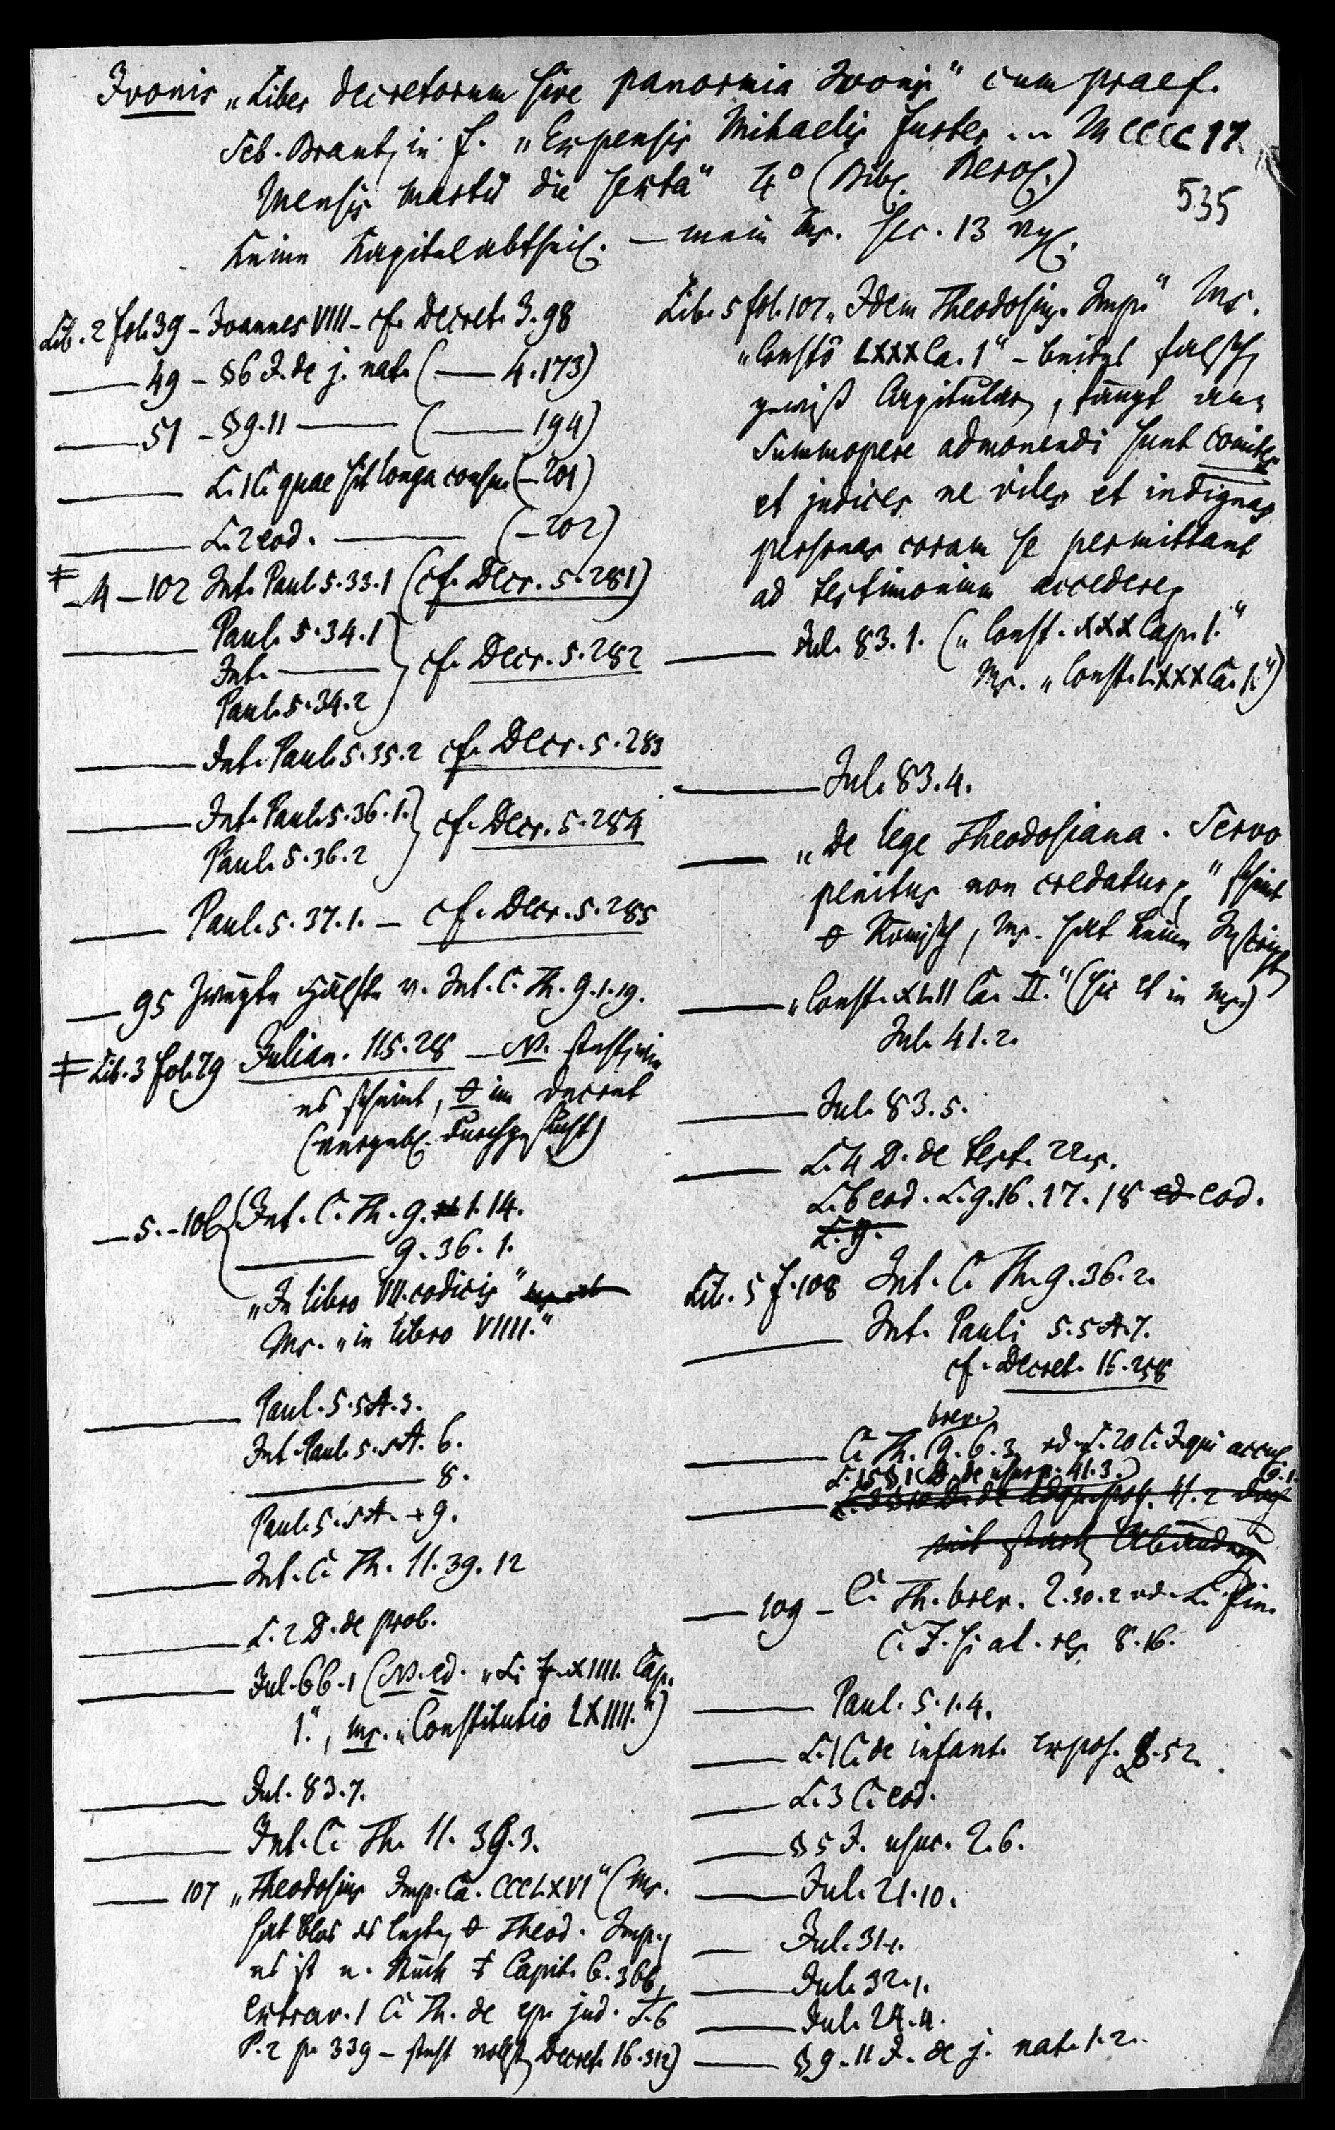 Ivonis „Liber decretorum sive panormia Ivonis“ cum praef.
Seb. Brant, in f. „Expensis Mihaelis Furter ... MCCCC
Mensis Martii die sexta“ 4° (Bibl. Berol.)
535
Keine Kapitelabtheil. — mein Ms. sec. 13
Lib. 2 fol. 39 – Joannes VIII – cf. Decret. 3.98
— 49 – §6 J. de j. nat. (— 4.173)
— 51 – §9.11 — (— 194)
— L. 1 C. quae sit longa consu. (– 201)
— L. 2 eod. — (– 202)
– 4 – 102 Int. Paul. 5.33.1 (cf. Decr. 5.281)
— Paul. 5.34.1
Int. —
Paul. 5.34.2
cf. Decr. 5.282
— Int. Paul. 5.35.2 cf. Decr. 5.283
— Int. Paul. 5.36.1.
Paul. 5.36.2
cf. Decr. 5.284
— Paul. 5.37.1. – cf. Decr. 5.285
— 95 Zweyte Hälfte v. Int. C. Th. 9.1.19.
Lib. 3 fol. 79 Julian. 115.28 — N. steht, wie
es scheint, im Decret
(vergebl. durchgesucht)
— 5. – 106 Int. C. Th. 9. 1.14.
— 9.36.1.
„In libro VII. codicis“
Ms. „in libro VIIII.“
— Paul. 5.5A.3.
Int. Paul. 5.5A. 6.
— 8.
Paul. 5.5A. + 9.
— Int. C. Th. 11.39.12
— L. 2 D. de prob.
— Jul. 66.1 (N. ed. „Li XIIII. Cap.
1.“, ms. „Constitutio LXIIII.“)
— Jul. 83.7.
— Int. C. Th. 11.39.3.
— 107 „Theodosius Imp. Ca. CCCLXVI“ (Ms.
hat blos Theod. Imp.
es ist e. Stück Capit. 6.366,
extrav. 1 C. Th. de ep. jud. T. 6
P. 2 p. 339 – steht Decret. 16.312)
Lib. 5 fol. 107 „Idem Theodosius Imp.“ Ms.
„Constō LXXX Ca. 1“ – beides falsch,
gewiß Capitular, fängt an:
Summopere admonendi sunt comites
et judices ne viles et indignas
personas coram se permittant
ad testimonium accedere,
— Jul. 83.1. („Const. XXX Cap. 1.“
Ms. „Const. LXXX Ca. 1.“)
— Jul. 83.4.
— „De lege Theodosiana. Servo
penitus non credatur,“ scheint
Römisch, Ms. hat keine
— „Const. XLII Ca. II.“ (sic et in ms.)
Jul. 41.2.
— Jul. 83.5.
— L. 4 D. de test. 22.5.
L. 6 eod. L. 9.16.17.18 eod.
L. 9.
Lib. 5 f. 108 Int. C. Th. 9.36.2.
— Int. Pauli 5.5A.7.
cf. Decret. 16.258
brev.
— C. Th. 9.6.3 vd. L. 20 C. J. qui accus.
9.1.
L. 15 § 1 D. de usurp. 41.3.
mit stark Abänderg
— 109 – C. Th. brev. 2.30.2 vd. L. fin.
C. J. si al. res. 8.16.
— Paul. 5.1.4.
— L. 1 C. de infant. expos. 8.52.
— L. 3 C. eod.
— § 5 J. usuc. 2.6.
— Jul. 21.10.
— Jul. 31.
— Jul. 32.1.
— Jul. 24.4.
— § 9.11 J. de j. nat. 1.2.